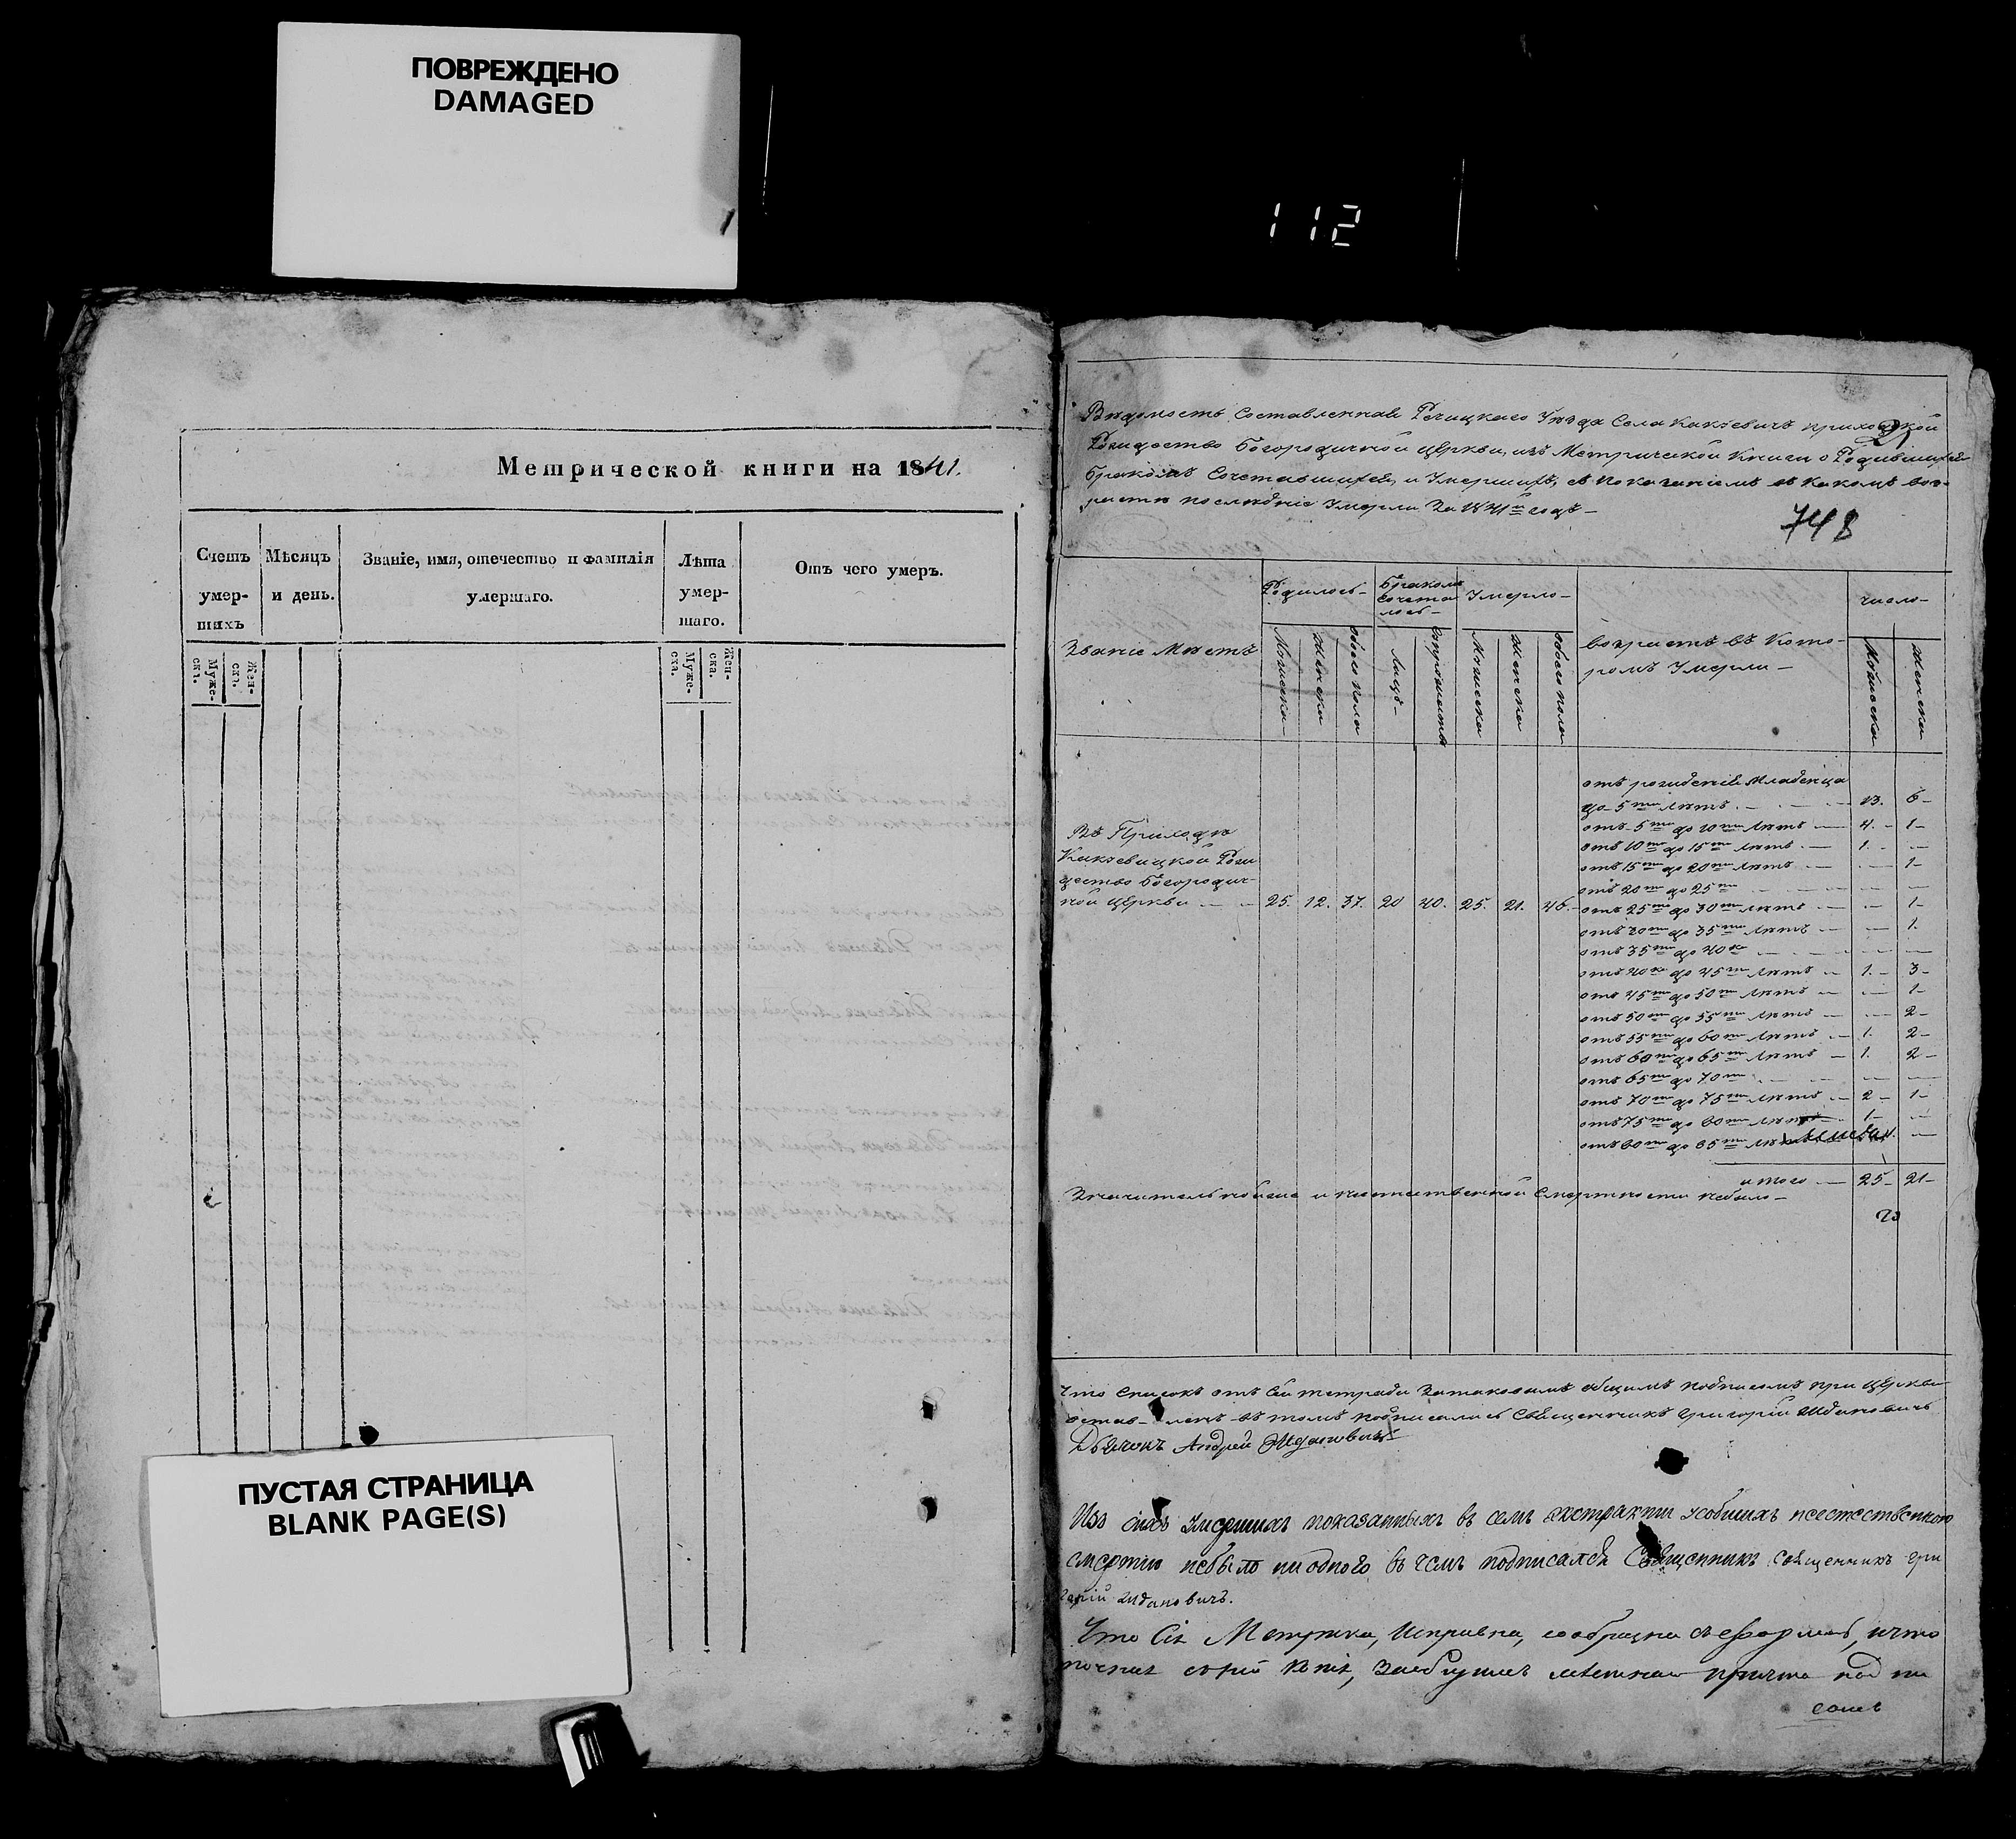 ПОВРЕЖДЕНО
DAMAGED
112
Метрической книги на 1841.
Счетъ умер-шихъ
Мѣсяцъ и день.
Званіе, имя, отечество и фамилія умершаго.
Лѣта умер-шаго.
Отъ чего умеръ.
Муже-ска.
Жен-ска.
Муже-ска.
Жен-ска.
ПУСТАЯ СТРАНИЦА
BLANK PAGE(S)
Вѣдомость Составленная Речицкаго Уѣзда Села Какѣевичъ приходской
Рождество Богородичной Церкви, изъ Метрической Книги о Родившихся
Бракомъ Сочетавшихся, и Умершихъ, съ показаніемъ въ какомъ воз-
растѣ послѣдніе Умерли За 1841й годъ —
748
Званіе Мѣстъ
Родилось —
Бракомъ Сочета лось —
Умерло —
возрастъ въ Кото-ромъ Умерли —
число —
Мужеска
Женска
обоего пола
Лицъ —
Мужеска
Женска
обоего пола
Мужеска
Женска
Въ Приходѣ
Какѣевицкой Рож
дество Богородич-
ной Церкви — — 25. 12. 37. 20 40. 25. 21. 46.
отъ рожденія Младенца
до 5ти лѣтъ — 13. 6 —
отъ 5ти до 10ти лѣтъ — 4. — 1 —
отъ 10ти до 15ти лѣтъ — 1. — —
отъ 15ти до 20ти лѣтъ — — 1 —
отъ 20ти до 25ти — — —
отъ 25ти до 30ти лѣтъ — — 1 —
отъ 30ти до 35ти лѣтъ — — 1.
отъ 35ти до 40ка — — —
отъ 40ка до 45ти лѣтъ — 1. — 3 —
отъ 45ти до 50ти лѣтъ — — 1 —
отъ 50ти до 55ти лѣтъ — — 2 —
отъ 55ти до 60ти лѣтъ — 1. 2 —
отъ 60ти до 65ти лѣтъ — 1. 2 —
отъ 65ти до 70ти — — —
отъ 70ти до 75ти лѣтъ — 2 — 1 —
отъ 75ти до 80ти лѣтъ — 1 — —
отъ 80ти до 85ти —
итого — 25 — 21 —
Значительнойше и неестественной Смертности небыло —
Что Списокъ отъ Сей тетради Затаковымъ общимъ подписомъ при Церкви
остав-ленъ въ томъ подписались Священникъ Григорій Ждановичъ
Дьячокъ Андрей Ждановичъ
Изъ сихъ умершихъ показанныхъ въ семъ екстрактѣ усобшихъ неестественною
смертію небыло ни одного въ чемъ подписался Священникъ Священникъ Гри
горій Ждановичъ.
Что Сія Метрика, Исправна, сообразна съ Формою, и что
причта под пи
сомъ